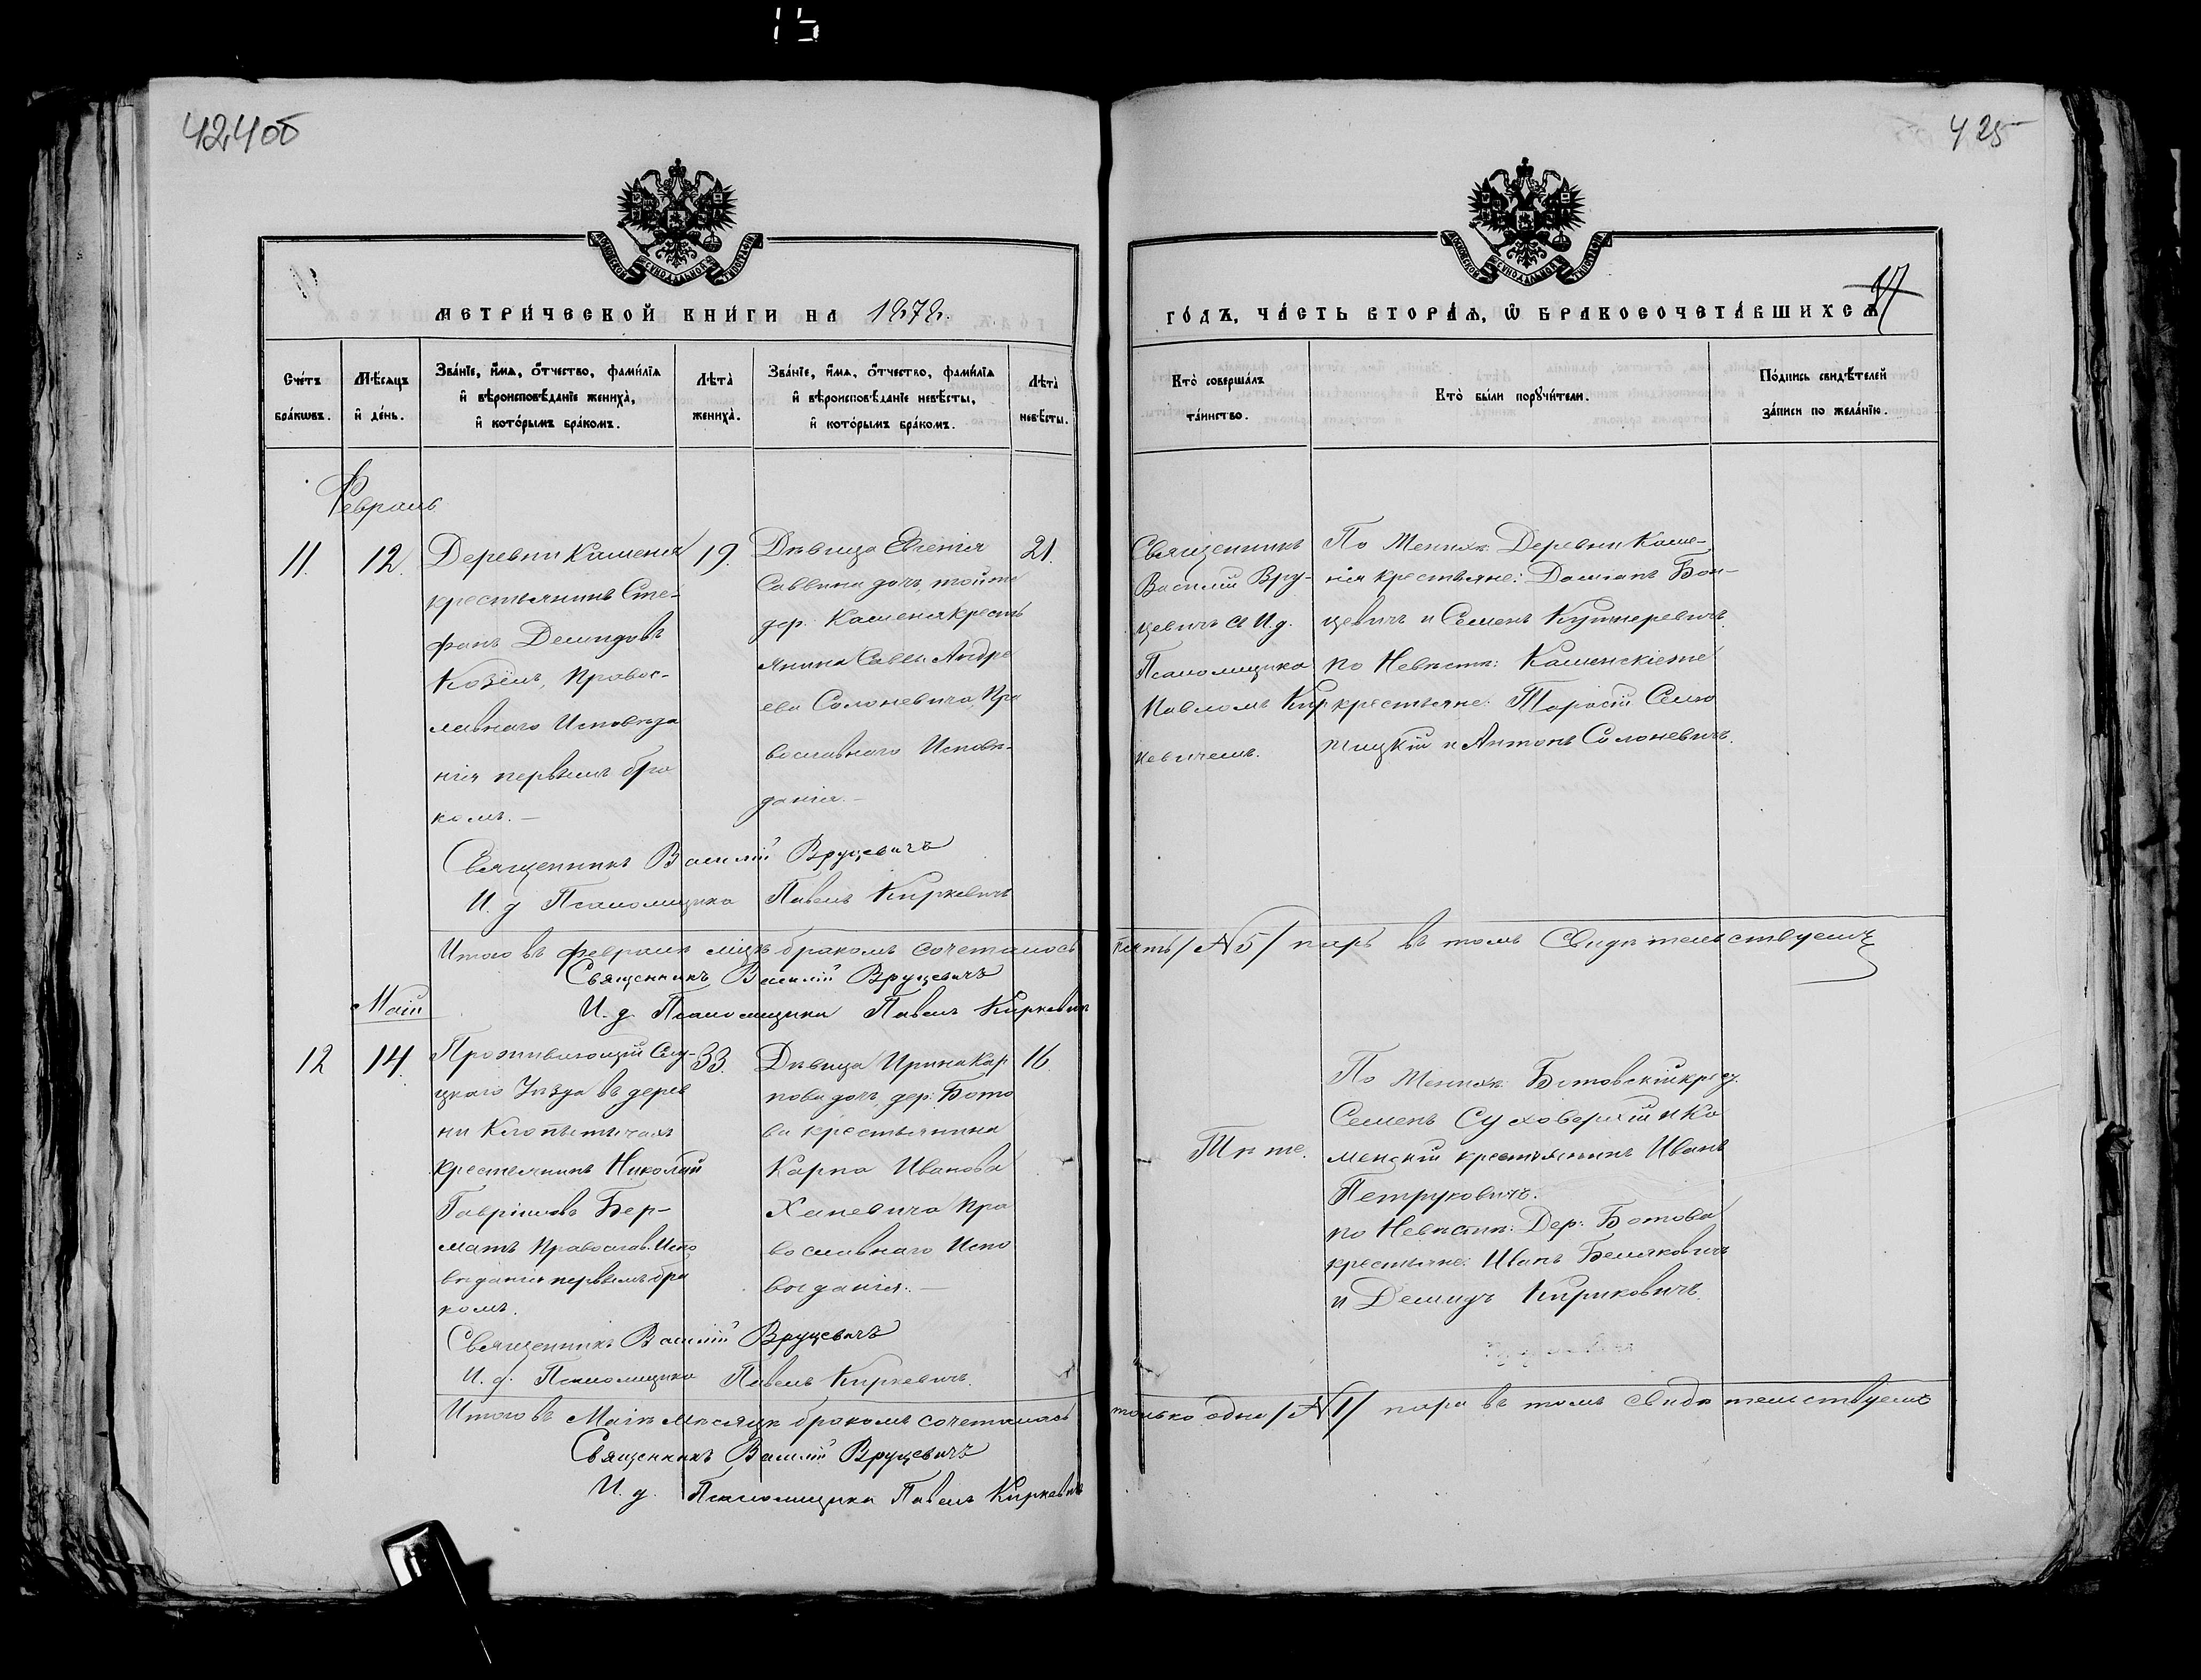 424об
425
17
МОСКОВСКОЙ СѴНОДАЛЬНОЙ ТИПОГРАФІИ
МОСКОВСКОЙ СѴНОДАЛЬНОЙ ТИПОГРАФІИ
МЕТРИ́ЧЕСКОЙ КНИ́ГИ НА 1878.
ГО́ДЪ, ЧА́СТЬ ВТОРА́Ѧ, Ѿ БРАКОСОЧЕТА́ВШИХСѦ
Сче́тъ бра́кѡвъ.
Мѣ́сѧцъ и҆ де́нь.
Зва́нїе, и҆́мѧ, ѻ҆́тчество, фами́лїѧ и҆ вѣроисповѣ́данїе жениха̀, и҆ кото́рымъ бра́комъ.
Лѣта̀ жениха̀.
Зва́нїе, и҆́мѧ, ѻ҆́тчество, фами́лїѧ и҆ вѣроисповѣ́данїе невѣ́сты, и҆ кото́рымъ бра́комъ.
Лѣта̀ невѣ́сты.
Кто̀ соверша́лъ та́инство.
Кто̀ бы́ли порꙋчи́тели.
По́дпись свидѣ́телей за́писи по жела́нїю.
Февраль
11.
12.
Деревни Каменя
крестьянинъ Сте-
фанъ Демидовъ
Козелъ, Правос-
лавнаго Исповѣда
нія первымъ бра
комъ.—
19.
Дѣвица Евгенія
Саввина дочь, тойже
дер. Каменя кресть
янина Саввы Андре
ева Солоневича Пра
вославнаго Исповѣ-
данія.—
21.
Священникъ
Василій Вру-
цевичъ а И.д.
Псаломщика
Павломъ Кир
кевичемъ.
По Женихѣ: Деревни Каме-
ня крестьяне: Даміанъ Бон-
цевичъ и Семенъ Кушнеревичъ
по Невѣстѣ: Каменскіеже
крестьяне: Тарасій Семо
жицкій и Антонъ Солоневичъ.
Священникъ Василій Вруцевичъ
И. д Псаломщика Павелъ Киркевичъ
Итого въ февралѣ м҃цѣ бракомъ сочеталось пять /№ 5/ паръ въ томъ свидѣтельствуемъ
Священникъ Василій Вруцевичъ
И. д. Псаломщика Павелъ Киркевичъ
Май
12
14.
Проживающій Слу-
цкаго Уѣзда въ дерев
ни
крестьянинъ Николай
Гавріиловъ Бер-
матъ Православ. Испо
вѣданія первымъ бра
комъ.
33.
Дѣвица Ирина Кар
пова дочь, дер: Бото
ва крестьянина
Карпа Иванова
Ханевича Пра
вославнаго Испо
вѣданія.—
16
Тѣже.
По Женихѣ: Ботовскій крест.
Семенъ Суховерхій и Ка
менскій крестьянинъ Иванъ
Петруковичъ.
по Невѣстѣ: Дер: Ботова
крестьяне: Иванъ Беляковичъ
и Демидъ Кириковичъ.
Священникъ Василій Вруцевичъ
И. д. Псаломщика Павелъ Киркевичъ.
Итого въ Маѣ мѣсяцѣ бракомъ сочеталась только одна /№ 1/ пара въ томъ свидѣтельствуемъ
Священникъ Василій Вруцевичъ
И. д. Псаломщика Павелъ Киркевичъ